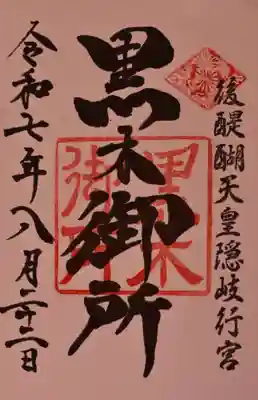 後醍醐天皇隠岐行宮
黒木御所
令和七年八月二十二日
黒木
御所